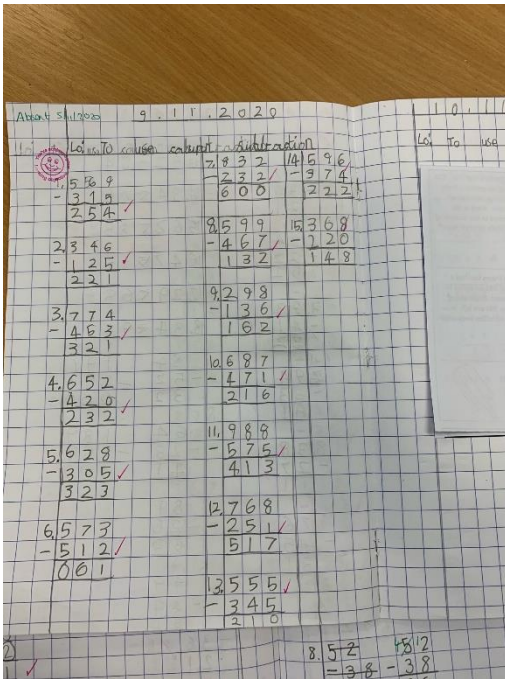 Absent 5/11/2020
9.11.2020
Lo: To use column subtraction
1. 569
- 315
254
2. 346
- 125
221
3. 774
- 453
321
4. 652
- 420
232
5. 628
- 305
323
6. 573
- 512
061
7. 832
- 232
600
8. 599
- 467
132
9. 298
- 136
162
10. 687
- 471
216
11. 988
- 575
413
12. 768
- 251
517
13. 555
- 345
210
14. 596
- 374
222
15. 368
- 220
148
10.11
Lo: To use
8. 52
- 38
512
- 38